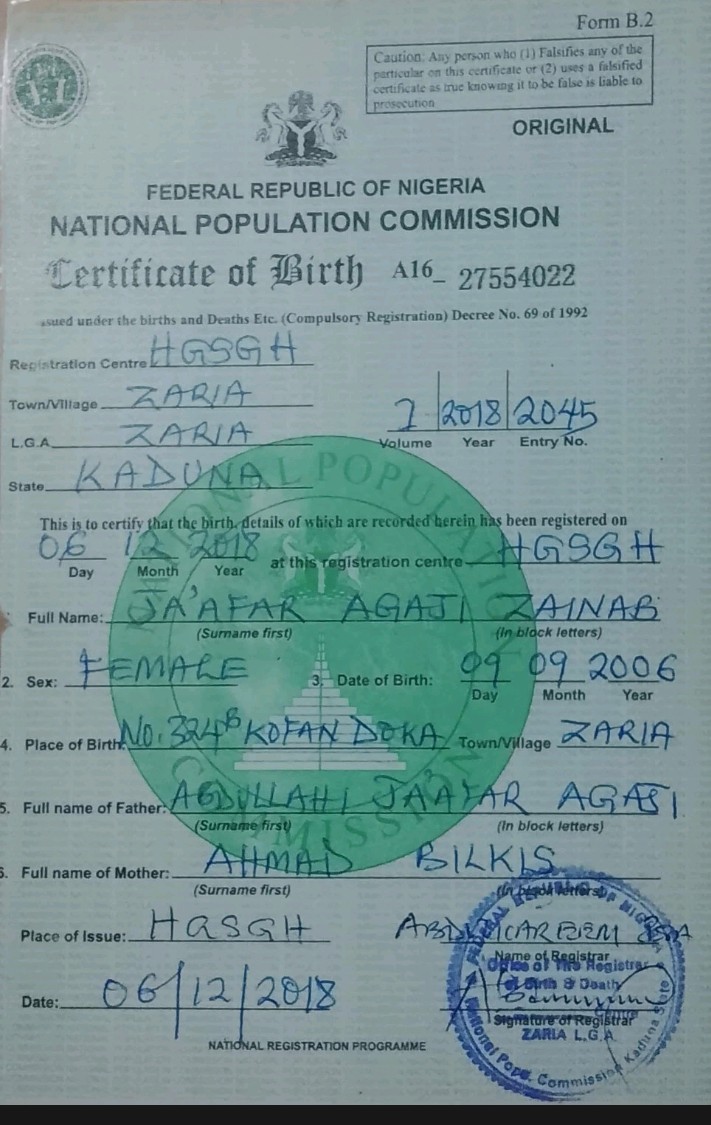 Form B.2
Caution: Any person who (1) Falsifies any of the
particular on this certificate or (2) uses a falsified
certificate as true knowing it to be false is liable to
prosecution
ORIGINAL
FEDERAL REPUBLIC OF NIGERIA
NATIONAL POPULATION COMMISSION
Certificate of Birth A16_ 27554022
ssued under the births and Deaths Etc. (Compulsory Registration) Decree No. 69 of 1992
Registration Centre HGSGH
Town/Village ZARIA
L.G.A. ZARIA
7 2018 2045
Volume Year Entry No.
State KADUNA
This is to certify that the birth, details of which are recorded herein has been registered on
06 12 2018 at this registration centre HGSGH
Day Month Year
Full Name: JA'AFAR AGAJI ZAINAB
(Surname first) (In block letters)
2. Sex: FEMALE 3. Date of Birth: 09 09 2006
Day Month Year
4. Place of Birth No. 324B KOFAN DOKA Town/Village ZARIA
5. Full name of Father: ABDULLAHI JA'AFAR AGAJI
(Surname first) (In block letters)
6. Full name of Mother: AHMAD BILKIS
(Surname first) (In block letters)
Place of Issue: HGSGH ABDULKAREEM
Name of Registrar
Office of The Registrar
of Birth & Death
Date: 06/12/2018
Signature of Registrar
ZARIA L.G.A.
National Popu. Commission Kaduna State
NATIONAL REGISTRATION PROGRAMME
NATIONAL POPULATION COMMISSION
FEDERAL REPUBLIC OF NIGERIA